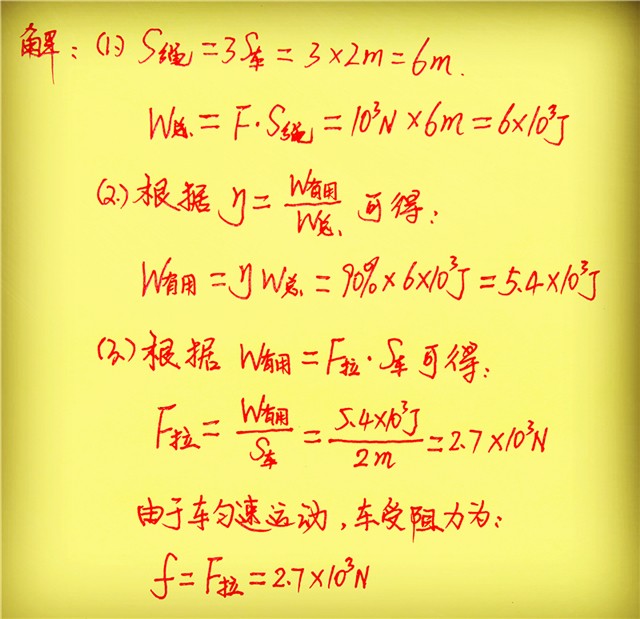 解：(1) S绳 = 3S车 = 3×2m = 6m.
W总 = F·S绳 = 10³N × 6m = 6×10³J
(2) 根据 η = W有用/W总 可得：
W有用 = ηW总 = 90% × 6×10³J = 5.4×10³J
(3) 根据 W有用 = F拉·S车 可得：
F拉 = W有用/S车 = 5.4×10³J/2m = 2.7×10³N
由于车匀速运动，车受阻力为：
f = F拉 = 2.7×10³N